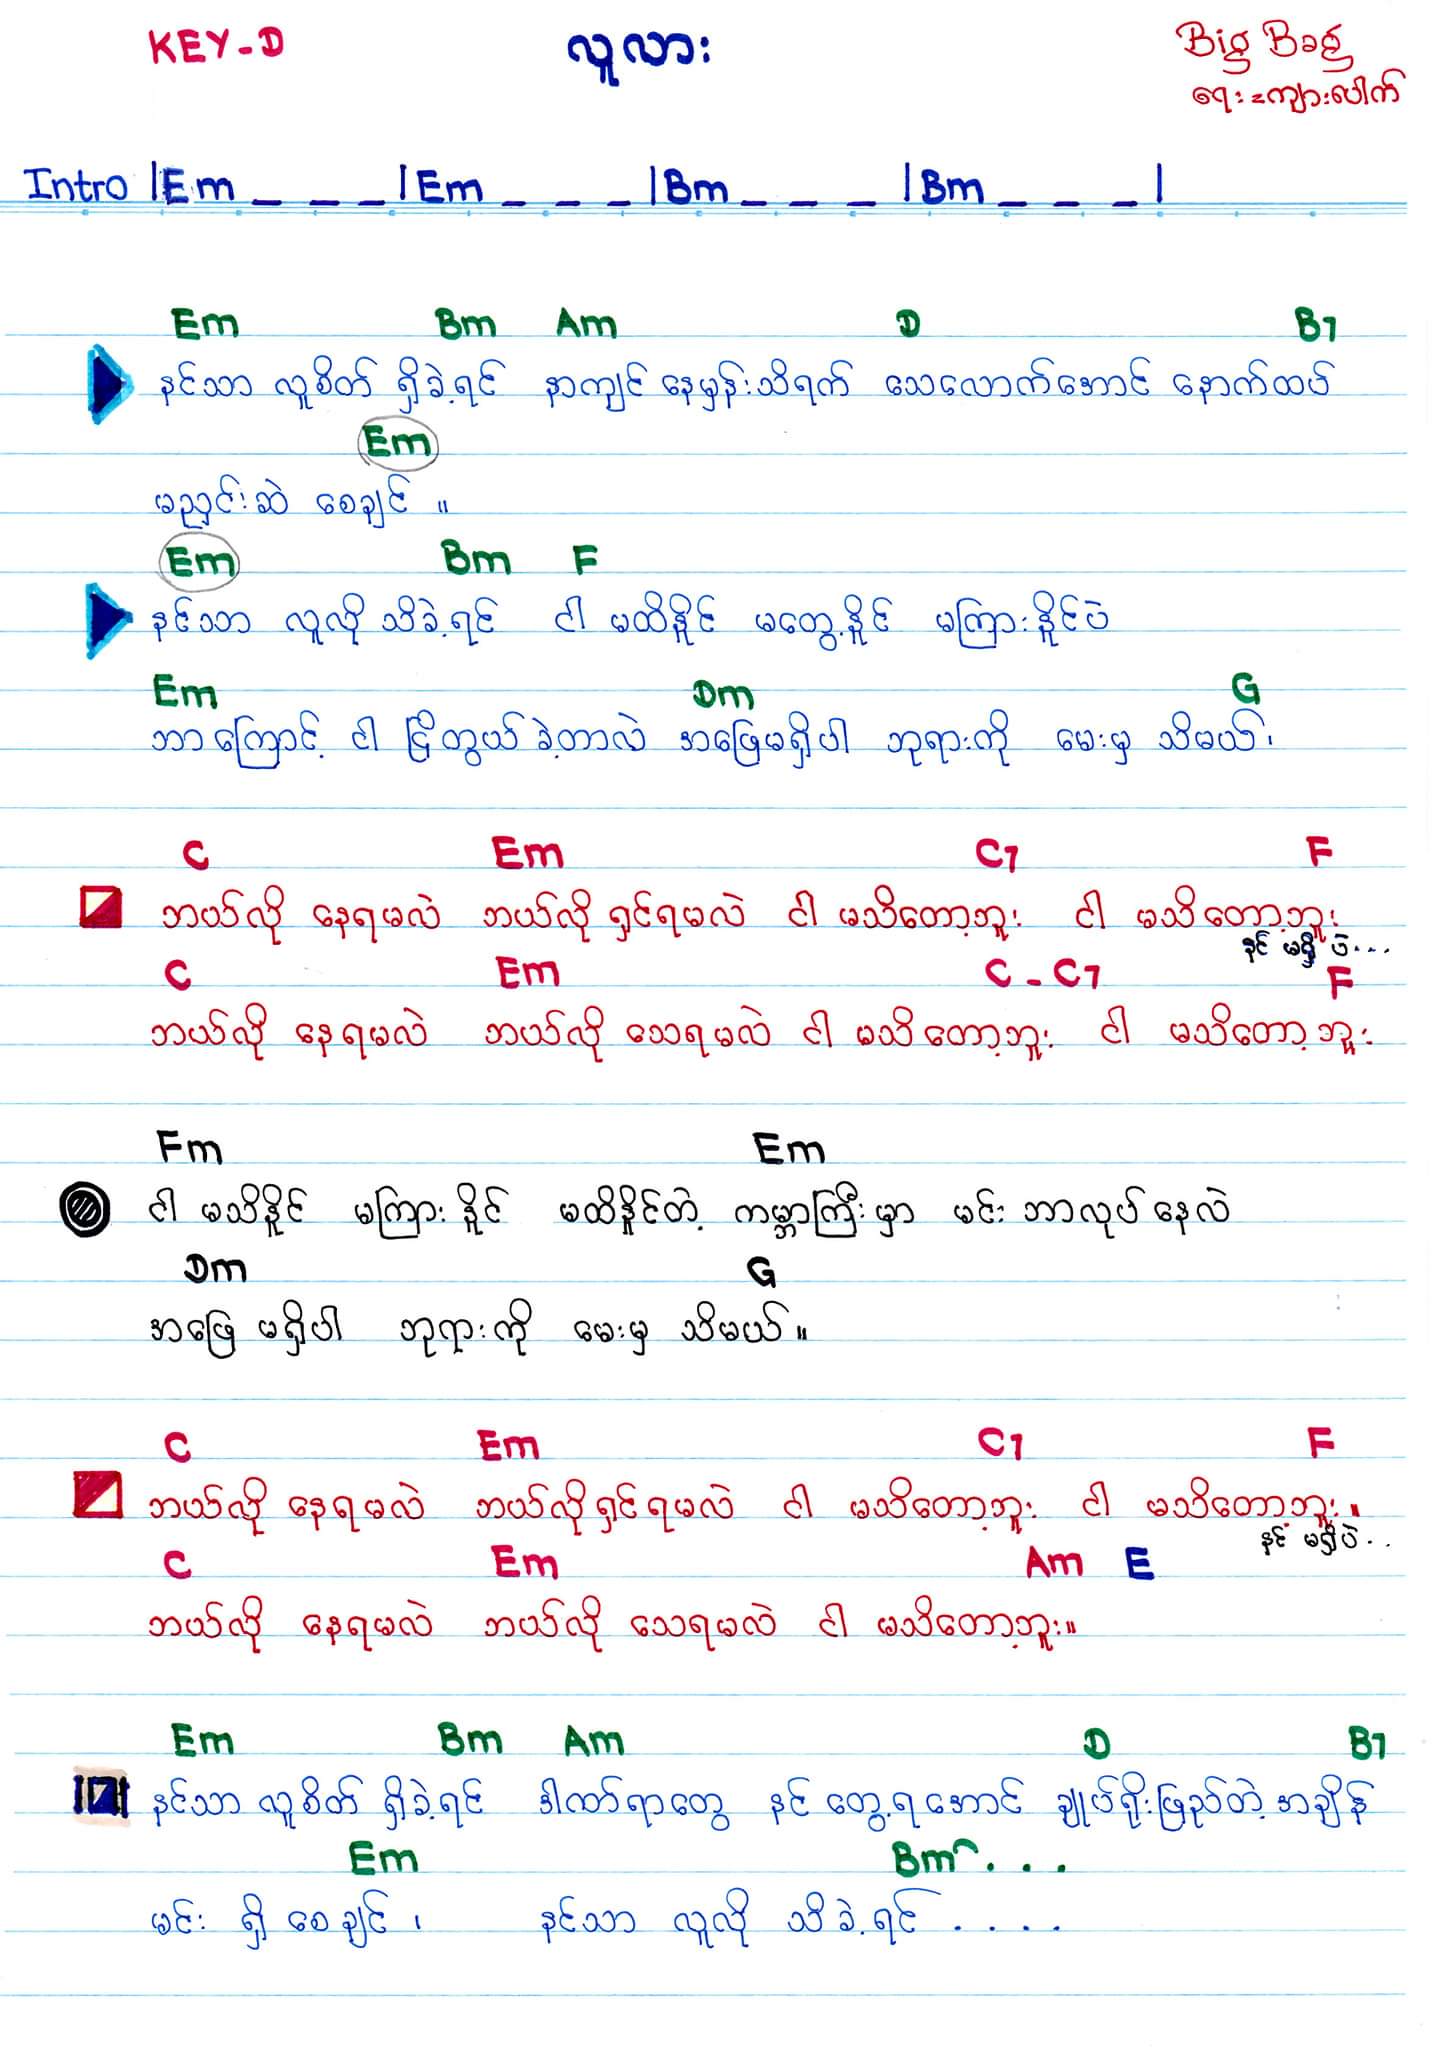 KEY-D လူလား Big Bag
ရေး=ကျားပေါက်
Intro |Em _ _ _ |Em _ _ _ |Bm _ _ _ |Bm _ _ _ |
Em Bm Am D B7
နင်သာ လူစိတ် ရှိခဲ့ရင် နာကျင် နေမှန်းသိရက် သေလောက်အောင် နောက်ထပ်
Em
မညှင်းဆဲ စေချင် ။
Em Bm F
နင်သာ လူလို သိခဲ့ရင် ငါ မထိနိုင် မတွေ့နိုင် မကြားနိုင်ပဲ
Em Dm G
ဘာကြောင့် ငါ ငြိတွယ် ခဲ့တာလဲ အဖြေမရှိပါ ဘုရားကို မေးမှ သိမယ်၊
C Em C7 F
ဘယ်လို နေရမလဲ ဘယ်လို ရှင်ရမလဲ ငါ မသိတော့ဘူး ငါ မသိတော့ဘူး
နင် မရှိ ပဲ...
C Em C - C7 F
ဘယ်လို နေရမလဲ ဘယ်လို သေရမလဲ ငါ မသိတော့ဘူး ငါ မသိတော့ဘူး
Fm Em
ငါ မသိနိုင် မကြားနိုင် မထိနိုင်တဲ့ ကမ္ဘာကြီးမှာ မင်း ဘာလုပ်နေလဲ
Dm G
အဖြေ မရှိပါ ဘုရားကို မေးမှ သိမယ်။
C Em C7 F
ဘယ်လို နေရမလဲ ဘယ်လိုရှင်ရမလဲ ငါ မသိတော့ဘူး ငါ မသိတော့ဘူး။
နင် မရှိပဲ..
C Em Am E
ဘယ်လို နေရမလဲ ဘယ်လို သေရမလဲ ငါ မသိတော့ဘူး။
Em Bm Am D B7
နင်သာ လူစိတ် ရှိခဲ့ရင် ဒါဏ်ရာတွေ နင် တွေ့ရအောင် ချုပ်ရိုးဖြည်တဲ့ အချိန်
Em Bm...
မင်း ရှိ စေချင် ၊ နင်သာ လူလို သိခဲ့ရင် ....